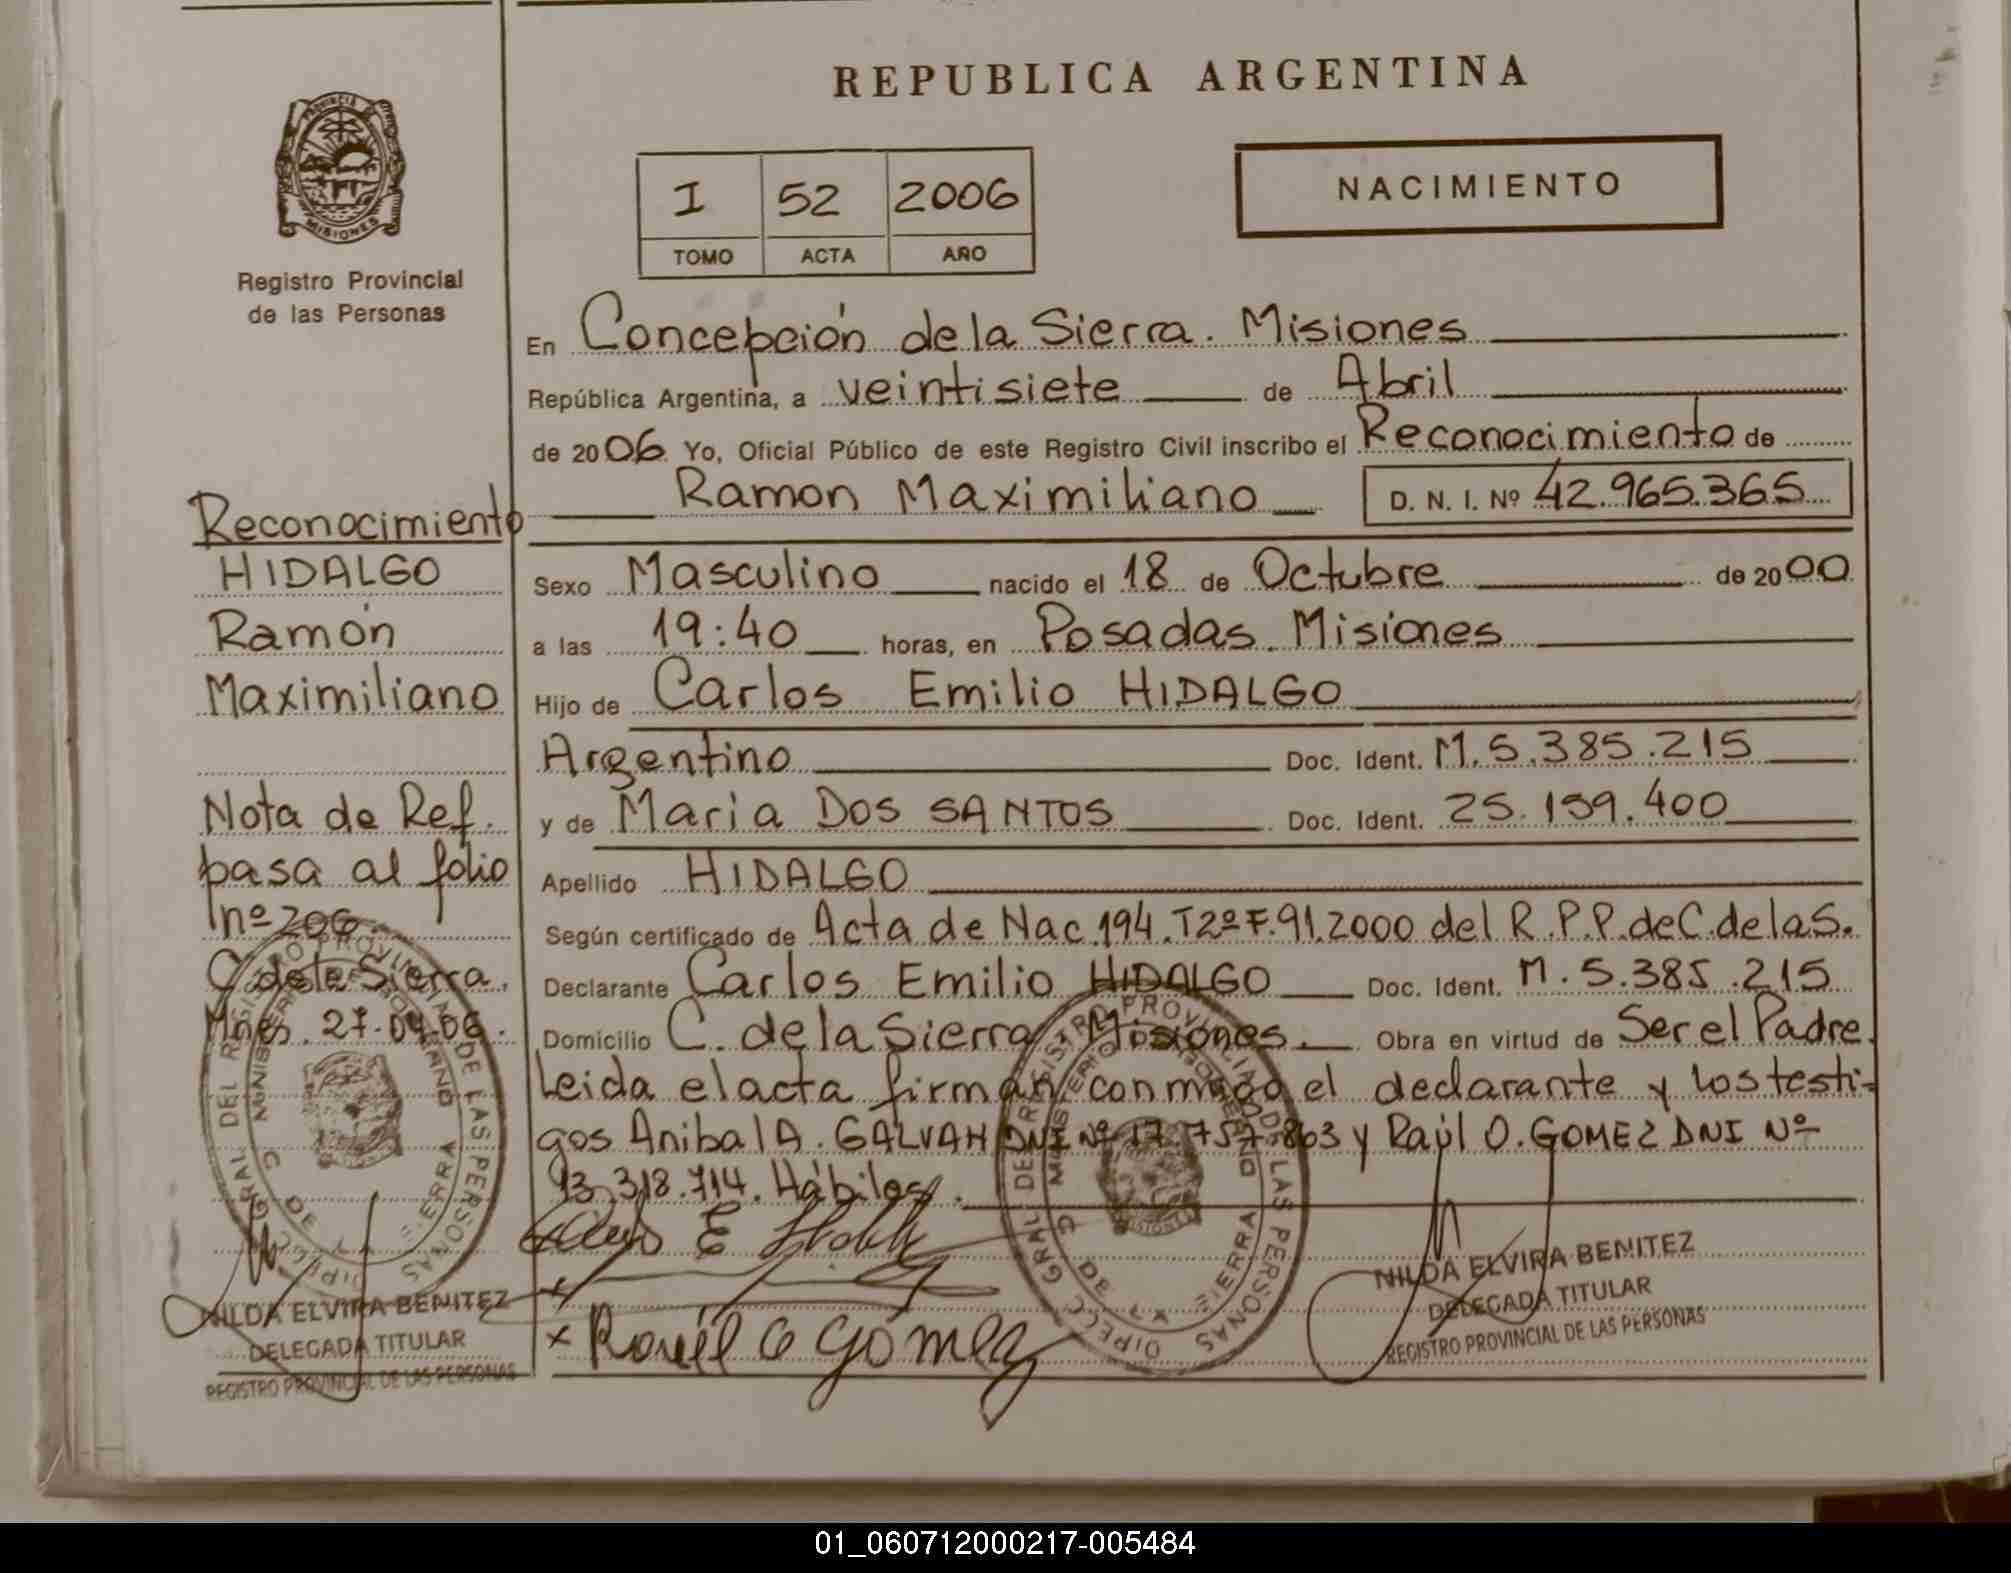 REPUBLICA ARGENTINA
PROVINCIA
MISIONES
Registro Provincial
de las Personas
I 52 2006
TOMO ACTA AÑO
NACIMIENTO
En Concepción de la Sierra. Misiones
República Argentina, a veintisiete de Abril
de 2006 Yo, Oficial Público de este Registro Civil inscribo el Reconocimiento de
Ramon Maximiliano D. N. I. Nº 42.965.365
Sexo Masculino nacido el 18 de Octubre de 2000
a las 19:40 horas, en Posadas. Misiones
Hijo de Carlos Emilio HIDALGO
Argentino Doc. Ident. M. 5.385.215
y de Maria DOS SANTOS Doc. Ident. 25.159.400
Apellido HIDALGO
Según certificado de Acta de Nac. 194. T2º F.91.2000 del R.P.P. de C. de la S.
Declarante Carlos Emilio HIDALGO Doc. Ident. M. 5.385.215
Domicilio C. de la Sierra Misiones. Obra en virtud de Ser el Padre.
Leida el acta firman conmigo el declarante y los testi-
gos Anibal A. GALVAN DNI Nº 17.757.863 y Raúl O. GOMEZ DNI Nº
93.318.714. Hábiles.
Reconocimiento
HIDALGO
Ramón
Maximiliano
Nota de Ref.
pasa al folio
nº 206.
C. de la Sierra.
Mnes. 27.04.06.
NILDA ELVIRA BENITEZ
DELEGADA TITULAR
REGISTRO PROVINCIAL DE LAS PERSONAS
Raúl O Gómez
NILDA ELVIRA BENITEZ
DELEGADA TITULAR
REGISTRO PROVINCIAL DE LAS PERSONAS
01_060712000217-005484